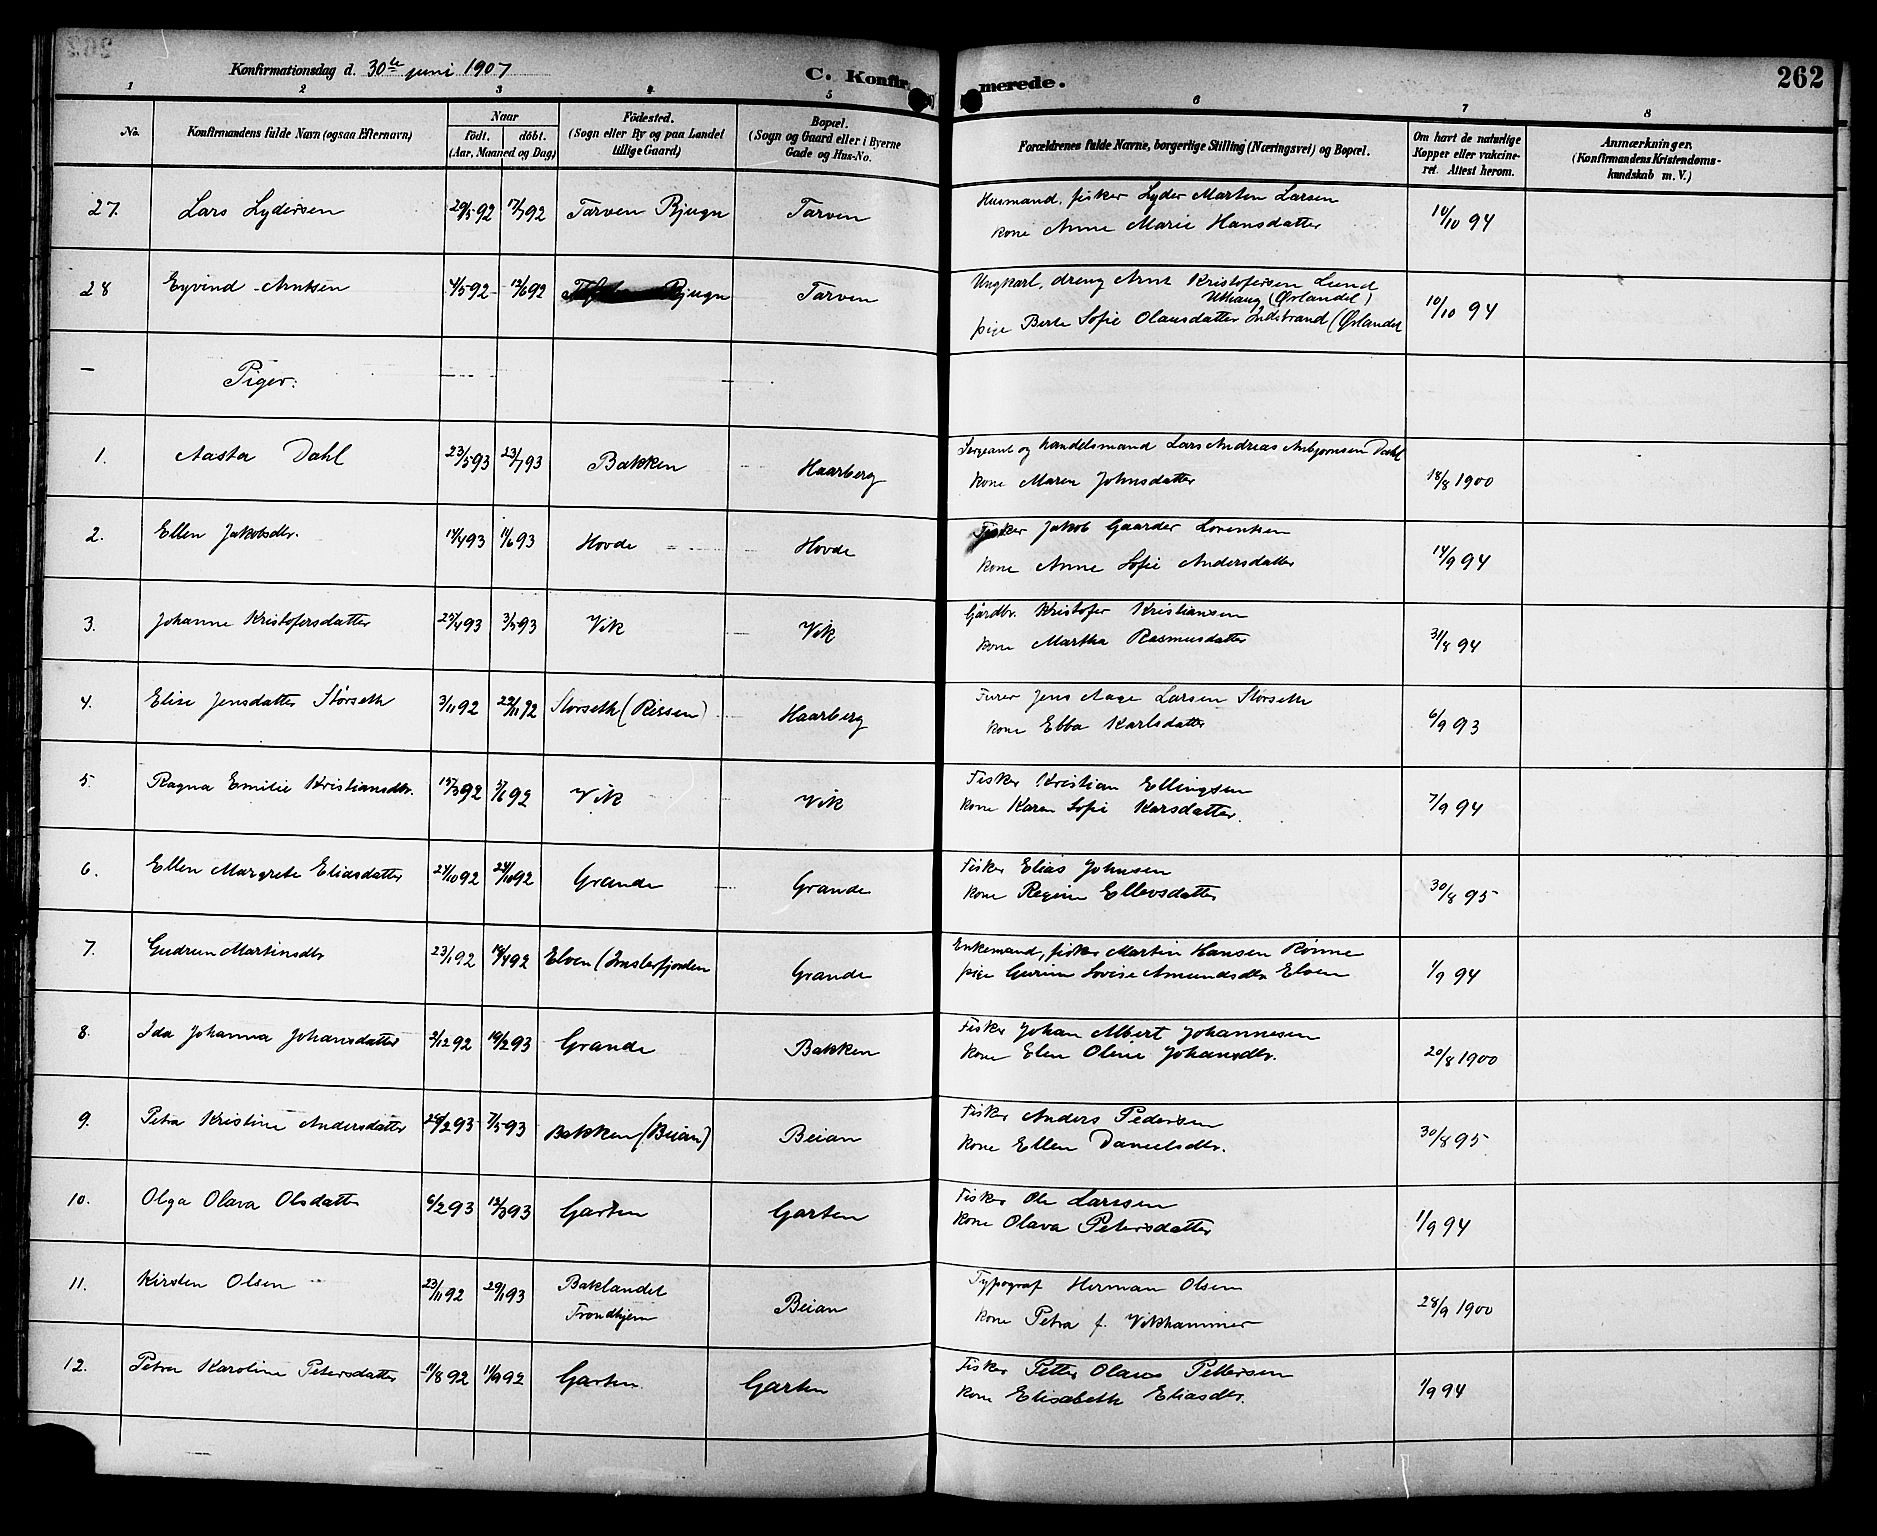 262
Konfirmationsdag d. 30te juni 1907
C. Konfir merede.
1 2 3 4 5 6 7 8
No. Konfirmandens fulde Navn (ogsaa Efternavn) Naar født. døbt. (Aar, Maaned og Dag) Fødested. (Sogn eller By og paa Landet tillige Gaard) Bopæl. (Sogn og Gaard eller i Byerne Gade og Hus-No. Forældrenes fulde Navne, borgerlige Stilling (Næringsvei) og Bopæl. Om havt de naturlige Kopper eller vakcineret. Attest herom. Anmærkninger, (Konfirmandens Kristendomskundskab m. V.)
27. Lars Lydersen 29/5 92 17/7 92 Tarven Bjugn Tarven Husmand, fisker Lyder Marten Larsen
kone Anne Marie Hansdatter 10/10 94
28 Eyvind Arntsen 4/5 92 12/6 92 Bjugn Tarven Ungkarl, dreng Arnt Kristofersen Lund
Uthaug (Ørlandet)
pige Berte Sofie Olausdatter Indstrand (Ørlandet 10/10 94
Piger:
1. Aasta Dahl 23/5 93 23/7 93 Bakken Haarberg Sergeant og handelsmand Lars Andreas Anbjørnsen Dahl
kone Maren Johnsdatter 18/8 1900
2. Ellen Jakobsdtr. 14/4 93 11/6 93 Hovde Hovde Fisker Jakob Gaarder Lorentsen
kone Anne Sofie Andersdatter 14/9 94
3. Johanne Kristofersdatter 25/4 93 3/5 93 Vik Vik Gårdbr. Kristofer Kristiansen
kone Martha Rasmusdatter 31/8 94
4. Elise Jensdatter Størseth 3/11 92 22/11 92 Størseth (Rissen) Haarberg Furer Jens Aage Larsen Størseth
kone Ebba Karlsdatter 6/9 93
5. Ragna Emilie Kristiansdtr. 15/3 92 5/6 92 Vik Vik Fisker Kristian Ellingsen
kone Karen Sofie Karsdatter. 7/9 94
6. Ellen Margrete Eliasdatter 24/10 92 24/10 92 Grande Grande Fisker Elias Johnsen
kone Regine Ellevsdatter 30/8 95
7. Gudrun Martinsdtr 23/1 92 18/4 92 Elven (Imslerfjorden Grande Enkemand, fisker Martin Hansen Rønne
pige Gurine Lovise Amundsdtr Elven 1/9 94
8. Ida Johanna Johansdatter 2/12 92 19/2 93 Grande Bakken Fisker Johan Albert Johannesen
kone Elen Oline Johansdtr. 20/8 1900
9. Petra Kristine Andersdatter 24/2 93 7/5 93 Bakken (Beian) Beian Fisker Anders Pedersen
kone Ellen Danielsdtr. 30/8 95
10. Olga Olava Olsdatter 6/2 93 12/3 93 Garten Garten Fisker Ole Larssen
kone Olava Petersdatter 1/9 94
11. Kirsten Olsen 23/11 92 29/1 93 Baklandet Trondhjem Beian Typograf Herman Olsen
kone Petra f. Vikhammer 28/9 1900
12. Petra Karoline Petersdatter 11/8 92 11/9 92 Garten Garten Fisker Petter Olaus Pettersen
kone Elisabeth Eliasdtr. 1/9 94